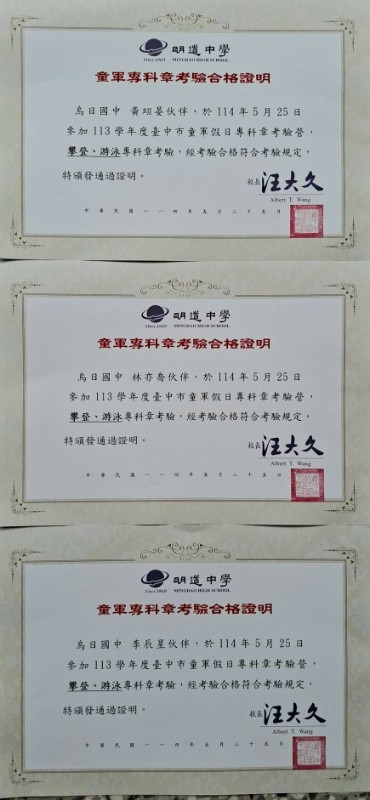 明道中學
Since 1969 MINGDAO HIGH SCHOOL
童軍專科章考驗合格證明
烏日國中 黃翊晏伙伴，於114年5月25日
參加113學年度臺中市童軍假日專科章考驗營，
攀登、游泳專科章考驗，經考驗合格符合考驗規定，
特頒發通過證明。
校長 汪大久
Albert T. Wang
中華民國一一四年五月二十五日
明道中學
Since 1969 MINGDAO HIGH SCHOOL
童軍專科章考驗合格證明
烏日國中 林亦喬伙伴，於114年5月25日
參加113學年度臺中市童軍假日專科章考驗營，
攀登、游泳專科章考驗，經考驗合格符合考驗規定，
特頒發通過證明。
校長 汪大久
Albert T. Wang
中華民國一一四年五月二十五日
明道中學
Since 1969 MINGDAO HIGH SCHOOL
童軍專科章考驗合格證明
烏日國中 李辰星伙伴，於114年5月25日
參加113學年度臺中市童軍假日專科章考驗營，
攀登、游泳專科章考驗，經考驗合格符合考驗規定，
特頒發通過證明。
校長 汪大久
Albert T. Wang
中華民國一一四年五月二十五日